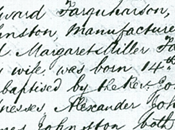 dward Farquharson,
hnston, Manufacture
d Margaret Miller Fa
wife was born 14th
baptised by the Rev. Jo
esses Alexander Joh
mes Johnston both